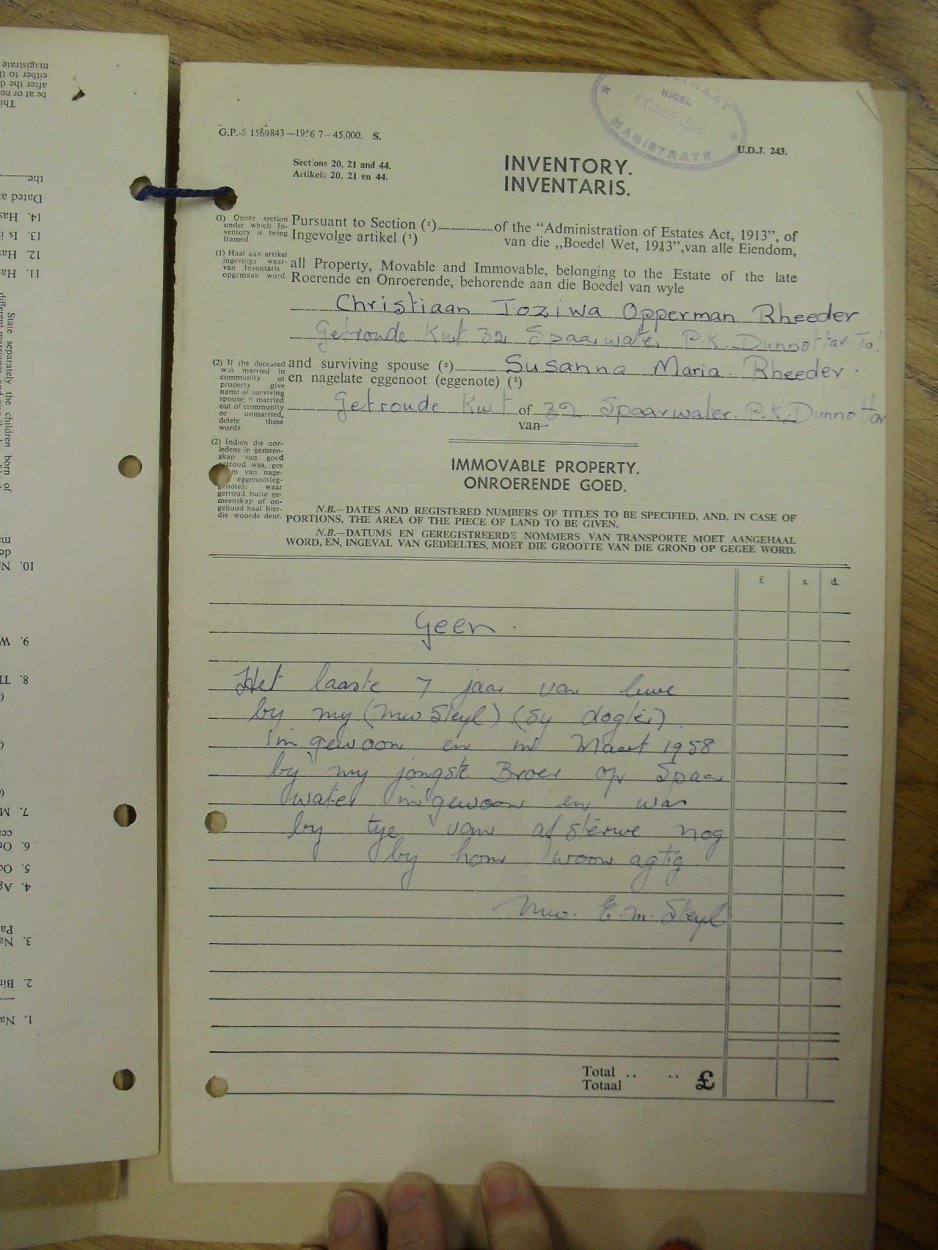 MAGISTRATE
NIGEL
G.P.-S 1569843—1956 7—45,000. S.
U.D.J. 243.
Sections 20, 21 and 44.
Artikels 20, 21 en 44.
INVENTORY.
INVENTARIS.
(1) Quote section under which Inventory is being framed.
(1) Haal aan artikel ingevolge waarvan Inventaris opgemaak word.
Pursuant to Section (¹) of the "Administration of Estates Act, 1913", of
Ingevolge artikel (¹) van die „Boedel Wet, 1913”,van alle Eiendom,
all Property, Movable and Immovable, belonging to the Estate of the late
Roerende en Onroerende, behorende aan die Boedel van wyle
Christiaan Joziwa Opperman Rheeder
Getroude Kwt 32 Spaarwater P.K. Dunnottar
(2) If the deceased was married in community of property give name of surviving spouse; if married out of community or unmarried, delete these words.
and surviving spouse (²) Susanna Maria. Rheeder.
en nagelate eggenoot (eggenote) (²)
Getroude Kwt of 32 Spaarwater. P.K. Dunnottar
van
(2) Indien die oorledene in gemeenskap van goed getroud was, gee van nageeggenoot(eggenote); waar getroud buite gemeenskap of ongehuud haal hierdie woorde deur.
IMMOVABLE PROPERTY.
ONROERENDE GOED.
N.B.—DATES AND REGISTERED NUMBERS OF TITLES TO BE SPECIFIED, AND, IN CASE OF
PORTIONS, THE AREA OF THE PIECE OF LAND TO BE GIVEN.
N.B.—DATUMS EN GEREGISTREERDE NOMMERS VAN TRANSPORTE MOET AANGEHAAL
WORD, EN, INGEVAL VAN GEDEELTES, MOET DIE GROOTTE VAN DIE GROND OP GEGEE WORD.
£ s. d.
Geen.
Het laaste 7 jaar van luwe
by my (Mw Steyl) (sy dogter)
in gewoon en in Maart 1958
by my jongste Broer op Spaar
water in gewoon en was
by tye van af sterwe nog
by hom woon agtig
Mw. E.M. Steyl
Total .. .. £
Totaal